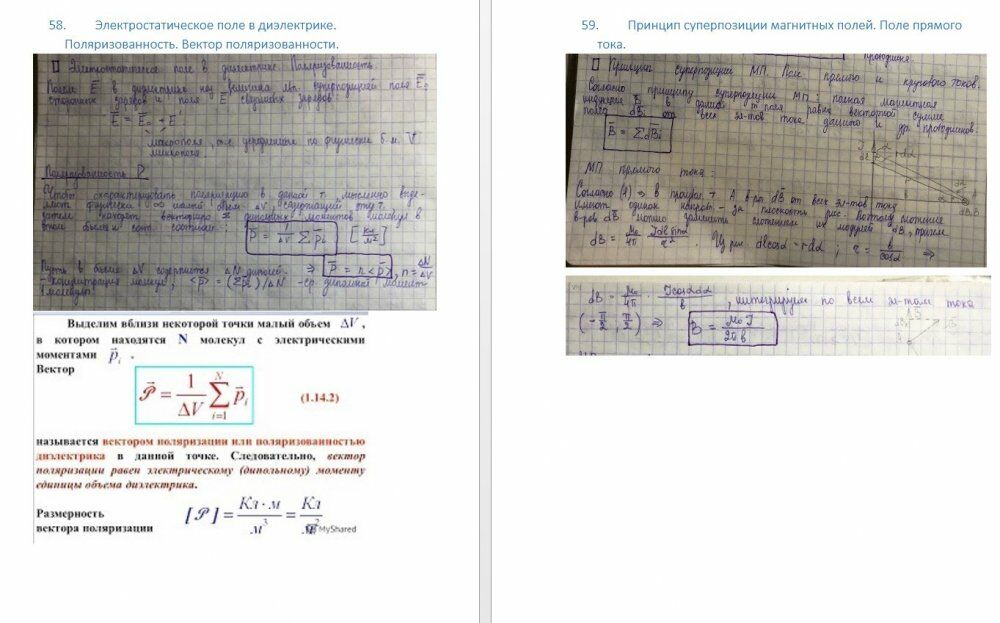 58. Электростатическое поле в диэлектрике.
Поляризованность. Вектор поляризованности.
Электростатическое поле в диэлектрике. Поляризованность.
Полем E в диэлектрике наз. величина суперпозицией поля E₀
сторонних зарядов и поля E' связанных зарядов:
E = E₀ + E'
макрополя, т.е. усреднённые по физически б.м. V
микрополя
Поляризованность P
Чтобы охарактеризовать поляризацию в данной т. мысленно выде-
ляют физически ∞ малый объём ΔV, содержащий эту т.
затем находят векторную дипольных моментов молекул в
этом объёме и сост. составл:
P = 1/ΔV Σ pᵢ [Кл/м²]
Пусть в объёме ΔV содержится ΔN диполей ⇒ P = n<p>, n = ΔN/ΔV
- концентрация молекул, <p> = (Σpᵢ)/ΔN - ср. дипольный момент
молекулы
Выделим вблизи некоторой точки малый объем ΔV,
в котором находятся N молекул с электрическими
моментами p⃗ᵢ.
Вектор
𝒫⃗ = 1/ΔV Σᵢ₌₁ᴺ p⃗ᵢ (1.14.2)
называется вектором поляризации или поляризованностью
диэлектрика в данной точке. Следовательно, вектор
поляризации равен электрическому (дипольному) моменту
единицы объема диэлектрика.
Размерность
вектора поляризации [𝒫] = Кл·м/м³ = Кл/м²
MyShared
59. Принцип суперпозиции магнитных полей. Поле прямого
тока.
проводника.
Принцип суперпозиции МП. Поле прямого и кругового токов.
Согласно принципу суперпозиции МП: полная магнитная
индукция B в данной т поля равна векторной сумме
полей dB от всех эл-тов тока данного и др. проводников.
B = Σ dBᵢ
МП прямого тока:
Согласно (1) ⇒ в произв. т A в-ра dB от всех эл-тов тока
имеют одинак. направл. - за плоскость рис. Поэтому сложение
в-ров dB можно заменить сложением их модулей dB, причём
dB = μ₀/4π · Idl sinα/r². Из рис dlcosα = rdα; r = b/cosα ⇒
dB = μ₀/4π · Icosαdα/b, интегрируем по всем эл-там тока
(-π/2, π/2) ⇒ B = μ₀I/2πb